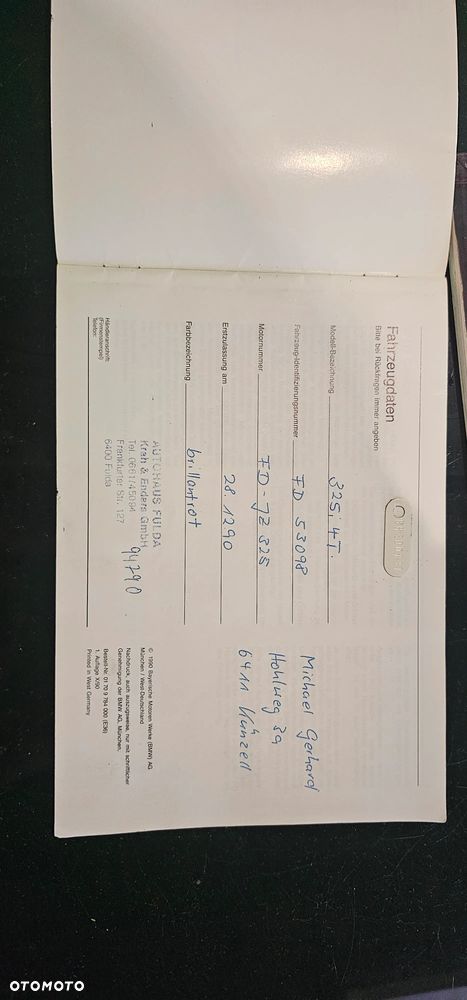 Fahrzeugdaten
Bitte bei Rückfragen immer angeben
Modell-Bezeichnung 325i 4T.
Fahrzeug-Identifizierungsnummer FD 53098
Motornummer FD-JZ 325
Erstzulassung am 28 12 90
Farbbezeichnung brillantrot
Michael Gerhard
Hohlweg 3a
6411 Künzell
Händleranschrift:
(Firmenstempel)
Telefon:
AUTOHAUS FULDA
Krah & Enders GmbH
Tel. 0661/45094
Frankfurter Str. 127
6400 Fulda
94790
© 1990 Bayerische Motoren Werke (BMW) AG
München / West-Deutschland
Nachdruck, auch auszugsweise, nur mit schriftlicher
Genehmigung der BMW AG, München.
Bestell-Nr. 01 70 9 784 000 (E36)
1. Auflage X/90
Printed in West Germany
OTOMOTO